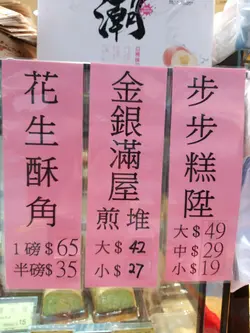 潮
花生酥角
1磅$65
半磅$35
金銀滿屋
煎堆
大$42
小$27
步步糕陞
大$49
中$29
小$19